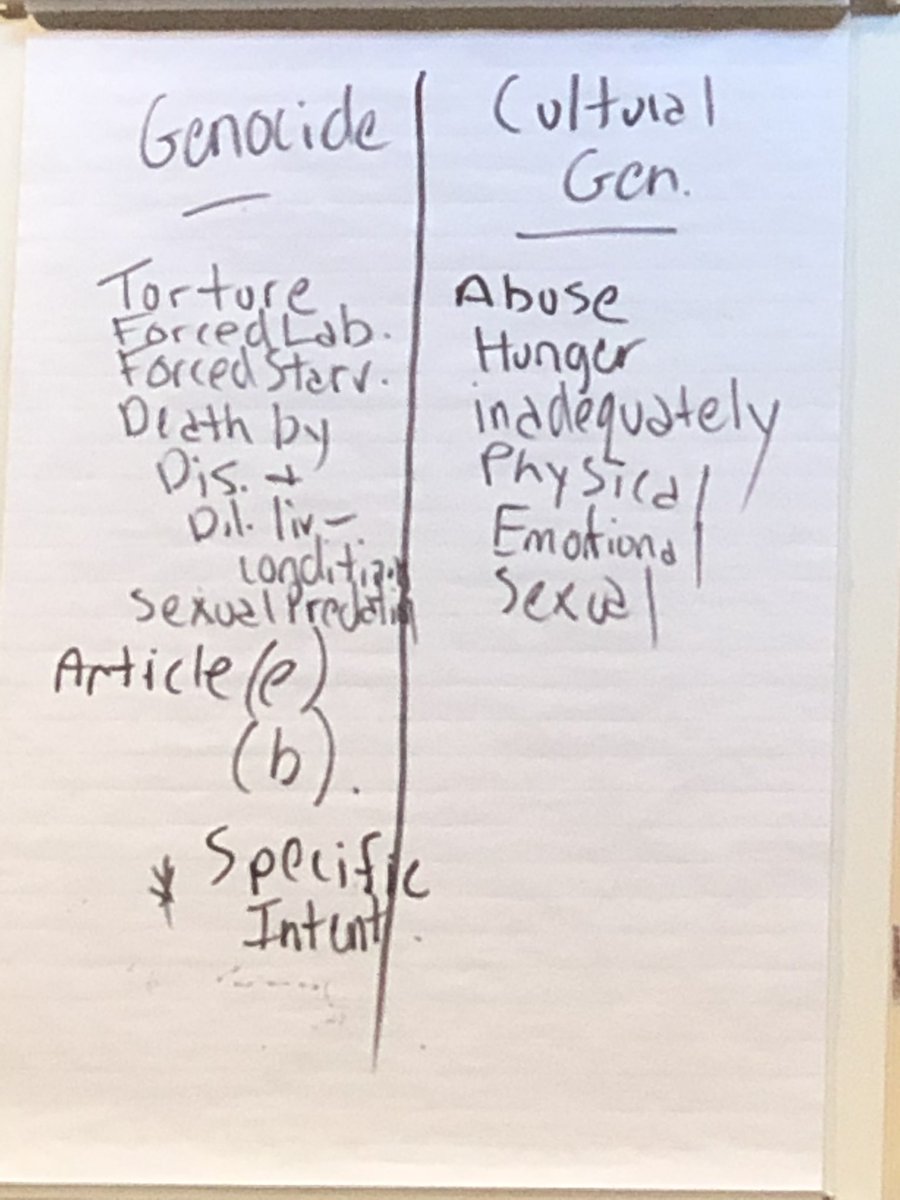 Genocide
Torture
Forced Lab.
Forced Starv.
Death by
Dis. +
Dil. liv-
condition
Sexual Predation
Article (e)
(b).
* Specific
Intent.
Cultural
Gen.
Abuse
Hunger
inadequately
Physical
Emotional
Sexual